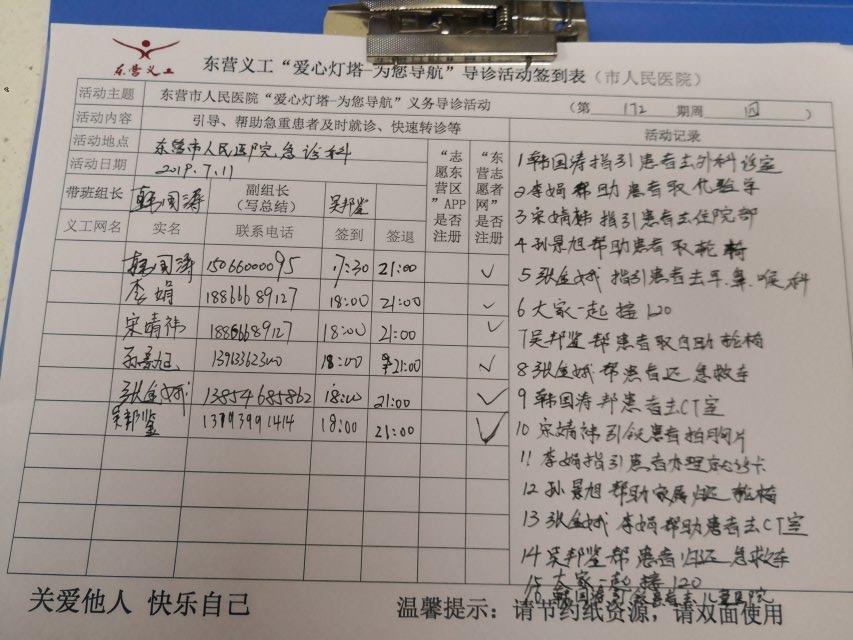 东营义工
东营义工“爱心灯塔-为您导航”导诊活动签到表（市人民医院）
活动主题 东营市人民医院“爱心灯塔-为您导航”义务导诊活动 （第 172 期周 四 ）
活动内容 引导、帮助急重患者及时就诊、快速转诊等
活动地点 东营市人民医院急诊科
活动日期 2019.7.11
带班组长 韩国涛 副组长（写总结） 吴邦鉴
“志愿东营区”APP是否注册
“东营志愿者网”是否注册
活动记录
义工网名 实名 联系电话 签到 签退
韩国涛 15066000095 17:30 21:00 ✓
李娟 18866689127 18:00 21:00 ✓
宋婧祎 18866689127 18:00 21:00 ✓
孙景旭 18:00 21:00 ✓
张金娥 13854685862 18:00 21:00 ✓
吴邦鉴 13793991414 18:00 21:00 ✓
1 韩国涛指引患者去外科诊室
2 李娟帮助患者取化验单
3 宋婧祎指引患者去住院部
4 孙景旭帮助患者取轮椅
5 张金娥指引患者去耳.鼻.喉科
6 大家一起接120
7 吴邦鉴帮患者取自助轮椅
8 张金娥帮患者还急救车
9 韩国涛帮患者去CT室
10 宋婧祎引领患者拍胸片
11 李娟指引患者办理就诊卡
12 孙景旭帮助家属归还轮椅
13 张金娥 李娟帮助患者去CT室
14 吴邦鉴帮患者归还急救车
15 大家一起接120
16 韩国涛引领患者去儿童医院
关爱他人 快乐自己
温馨提示：请节约纸资源，请双面使用